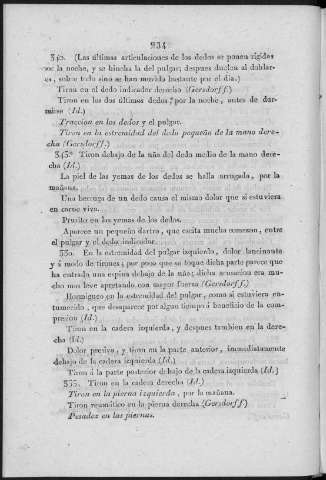 234
340. (Las últimas articulaciones de los dedos se ponen rígidas
por la noche, y se hincha la del pulgar; despues duelen al doblar-
se, sobre todo sino se han movido bastante por el dia.)
Tiron en el dedo indicador derecho (Gersdorff.)
Tiron en los dos últimos dedos, por la noche, antes de dor-
mirse (Id.)
Traccion en los dedos y el pulgar.
Tiron en la estremidad del dedo pequeño de la mano dere-
cha (Gersdorff.)
345. Tiron debajo de la uña del dedo medio de la mano dere-
cha (Id.)
La piel de las yemas de los dedos se halla arrugada, por la
mañana.
Una berruga de un dedo causa el mismo dolor que si estuviera
en carne viva.
Prurito en las yemas de los dedos.
Aparece un pequeño dartro, que escita mucha comezon, entre
el pulgar y el dedo indicador.
350. En la estremidad del pulgar izquierdo, dolor lancinante
y á modo de tirones; por poco que se toque dicha parte parece que
ha entrado una espina debajo de la uña; dicha sensacion era mu-
cho mas leve apretando con mayor fuerza (Gersdorff.)
Hormigueo en la estremidad del pulgar, como si estuviera en-
tumecido, que desaparece por algun tiempo á beneficio de la com-
presion (Id.)
Tiron en la cadera izquierda, y despues tambien en la dere-
cha (Id.)
Dolor presivo, y tiron en la parte anterior, inmediatamente
debajo de la cadera izquierda (Id.)
Tiron á la parte posterior debajo de la cadera izquierda (Id.)
355. Tiron en la cadera derecha (Id.)
Tiron en la pierna izquierda, por la mañana.
Tiron reumático en la pierna derecha (Gersdorff.)
Pesadez en las piernas.